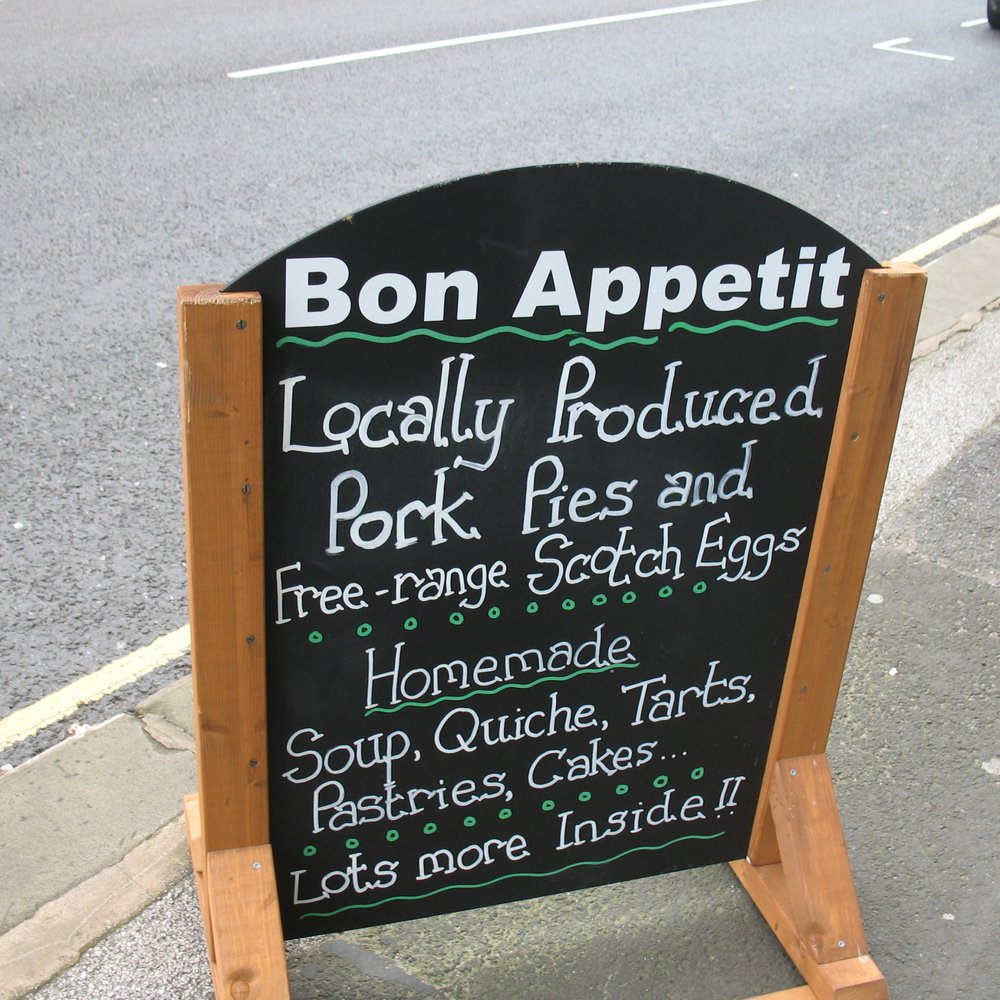 Bon Appetit
Locally Produced
Pork Pies and
Free-range Scotch Eggs
Homemade
Soup, Quiche, Tarts,
Pastries, Cakes...
Lots more Inside!!